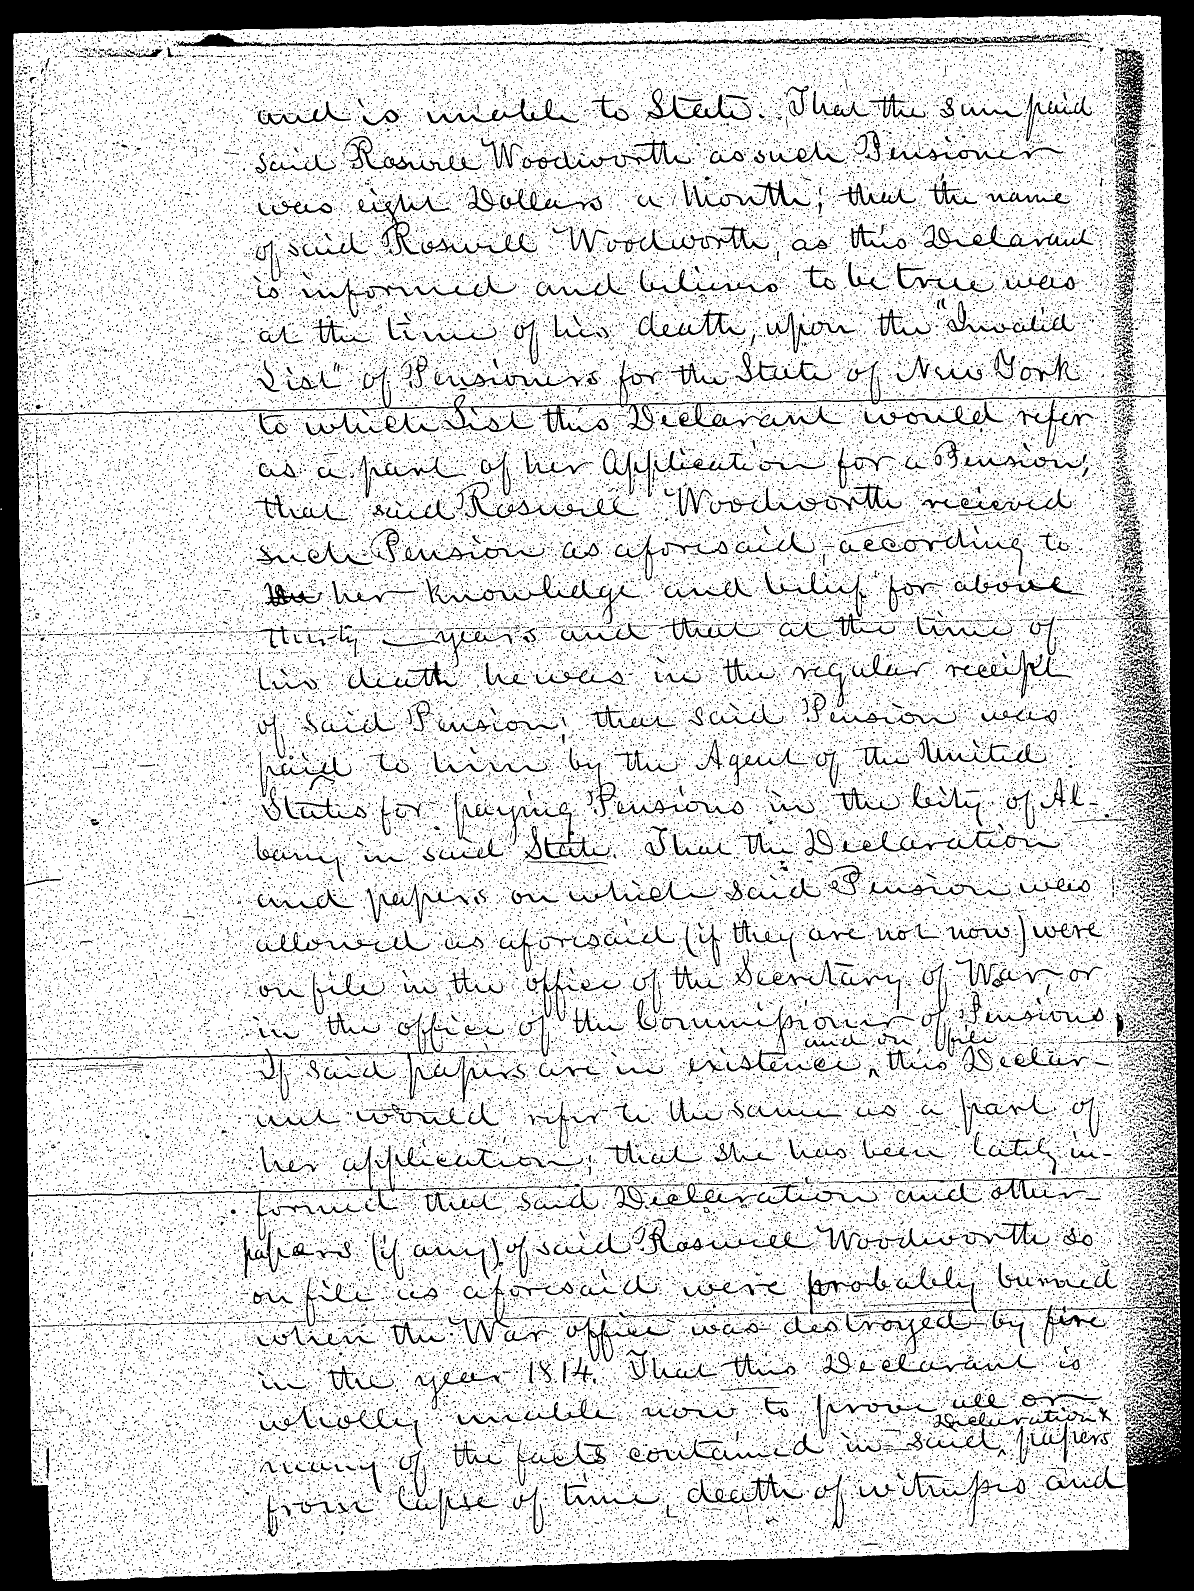 and is unable to State. That the sum paid
said Roswell Woodworth as such Pensioner
was eight Dollars a Month; that the name
of said Roswell Woodworth, as this Declarant
is informed and believes to be true was
at the time of his death, upon the "Invalid
List" of Pensioners for the State of New York
to which List this Declarant would refer
as a part of her Application for a Pension;
that said Roswell Woodworth recieved
such Pension as aforesaid, according to
her knowledge and belief for above
thirty years and that at the time of
his death he was in the regular receipt
of said Pension; that said Pension was
paid to him by the Agent of the United
States for paying Pensions in the City of Al-
bany in said State. That the Declaration
and papers on which said Pension was
allowed as aforesaid (if they are not now) were
on file in the office of the Secretary of War, or
in the office of the Commissioner of Pensions,
and on file
If said papers are in existence, this Declar-
ant would refer to the same as a part of
her application; that she has been lately in-
formed that said Declaration and other
papers (if any) of said Roswell Woodworth so
on file as aforesaid were probably burned
when the War office was destroyed by fire
in the year 1814. That this Declarant is
wholly unable now to prove all or
Declaration &
many of the facts contained in said papers
from lapse of time, death of witnesses and